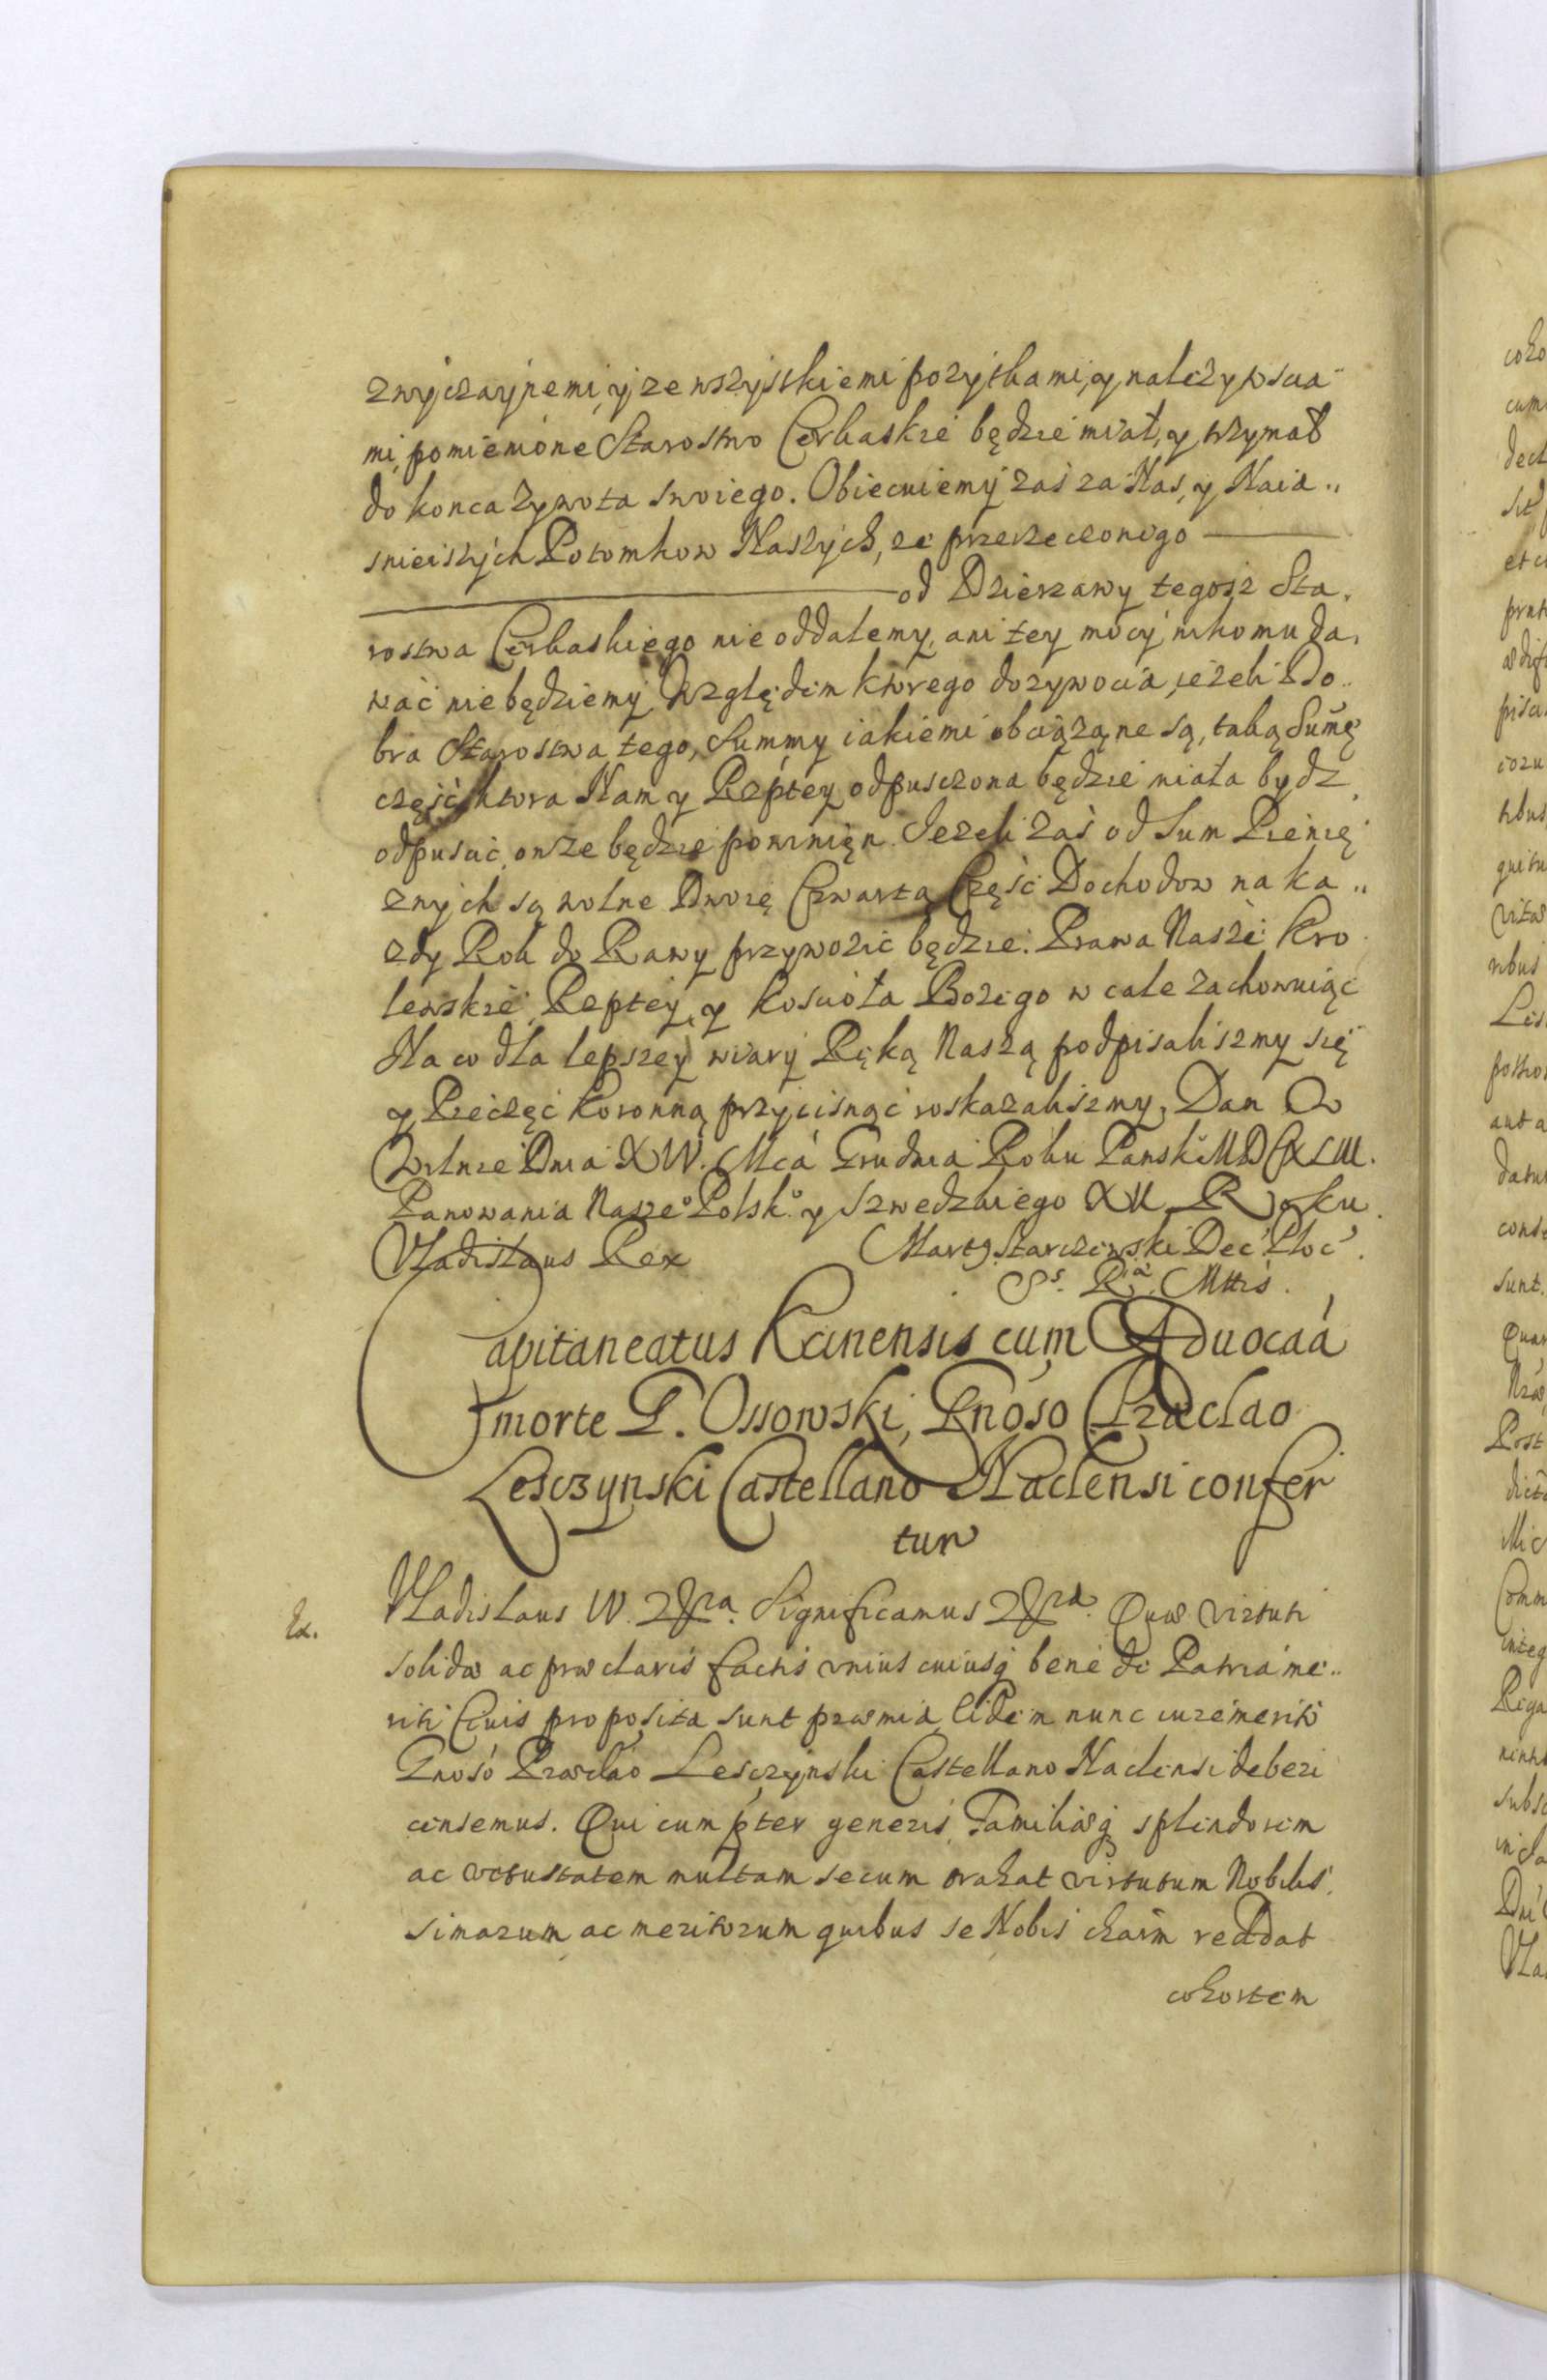 zwyczaynemi, y ze wszystkiemi pozytkami, y należytoscia-
mi, pomienione Starostwo Cerkaskie będzie miał, y trzymał
do konca Zywota swoiego. Obiecuiemy zas za Nas, y Naia-
snieiszych Potomkow Naszych, ze przerzeczonego
od Dzierzawy tegosz Sta-
rostwa Cerkaskiego nie oddalemy, ani tey mocy nikomu da-
wać nie będziemy. Względem ktorego dozywocia, ieżeli Do-
bra Starostwa tego, Summy iakiemi obciążąne są, taką Sum̃ę
część, ktora Nam y Rzptey odpusczona będzie miała bydz
odpuscić onze będzie powinięn. Jezeli zaś od Sum Pienię
znych są wolne Dwoię Czwartą Część Dochodow na ka-
zdy Rok do Rawy przywozić będzie. Prawa Nasze Kro
lewskie, Rzeptey, y Kościoła Bożego w cale zachowuiąc
Na co dla lepszey wiary Ręką Naszą podpisaliszmy się
y Pieczęć Koronną przycisnąć roskazaliszmy, Dan W
Wilnie Dnia XIV. Mca Grudnia Roku Panski MDCXLIII.
Panowania Nasze° Polsk° y Szwedzkiego XII Roku.
Vladislaus Rex Mart9. Starczewski Dec: Ploc.
Ss. Riæ. Mttis.
Capitaneatus Kcinensis cum Aduocaa
morte G. Ossowski, Gnoso Przeclao
Lesczynski Castellano Naclensi confer
tur
Ex. Vladislaus IV. &ra. Significamus &ra. Quæ virtuti
solidæ ac præclaris factis vnius cuiusq bene de Patria me-
riti Ciuis proposita sunt præmia, Eidem nunc iure merito
Gnoso Præclao Lesczynski Castellano Naclensi deberi
censemus. Qui cum pter generis, Familiæq splendorem
ac vetustatem multam secum trahat virtutum Nobilis-
simarum ac meritorum quibus se Nobis charm reddat
cohortem